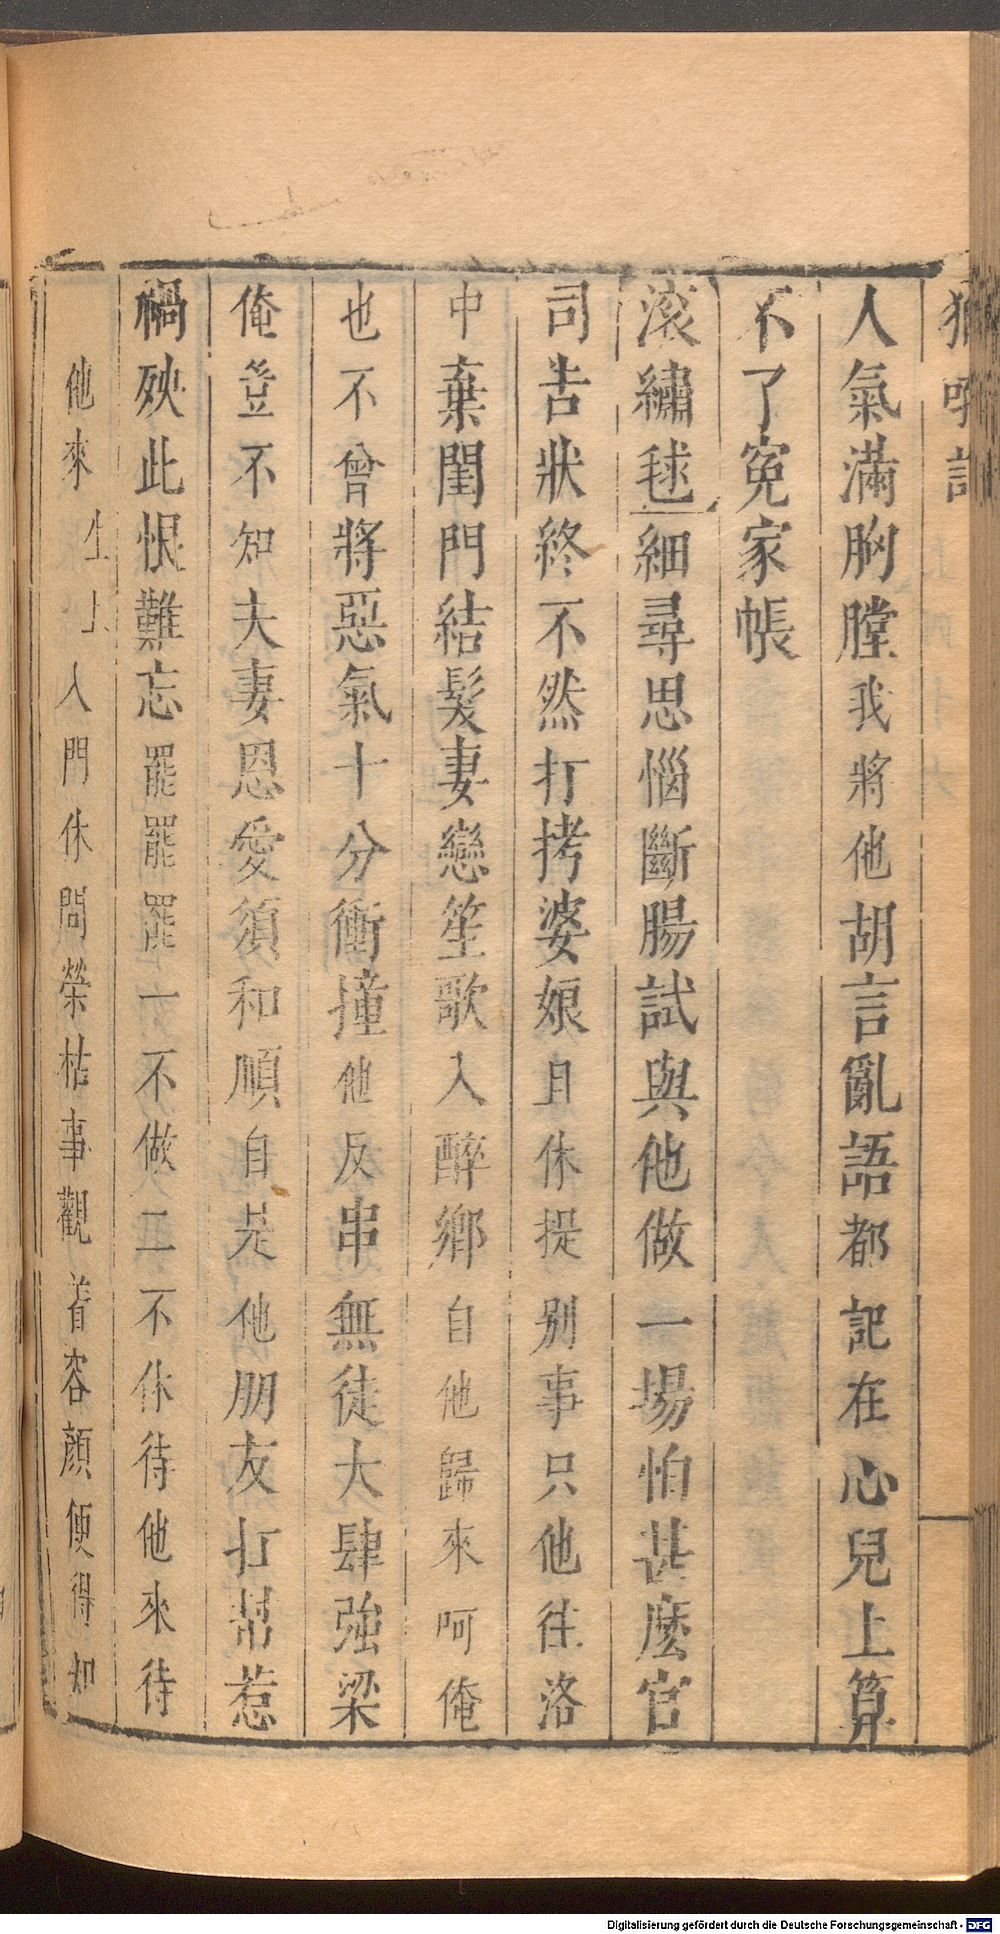 人氣滿胸膛我將他胡言亂語都記在心兒上算
不了寃家帳
滾繡毬細尋思惱斷腸試與他做一場怕甚麼官
司告狀終不然打拷婆娘且休提別事只他往洛
中棄閨門結髮妻戀笙歌入醉鄉自他歸來呵俺
也不曾將惡氣十分衝撞他反串無徒大肆強梁
俺豈不知夫妻恩愛須和順自是他朋友打幇惹
禍殃此恨難忘罷罷罷一不做二不休待他來待
他來 生上 入門休問榮枯事觀着容顏便得知
Digitalisierung gefördert durch die Deutsche Forschungsgemeinschaft - DFG